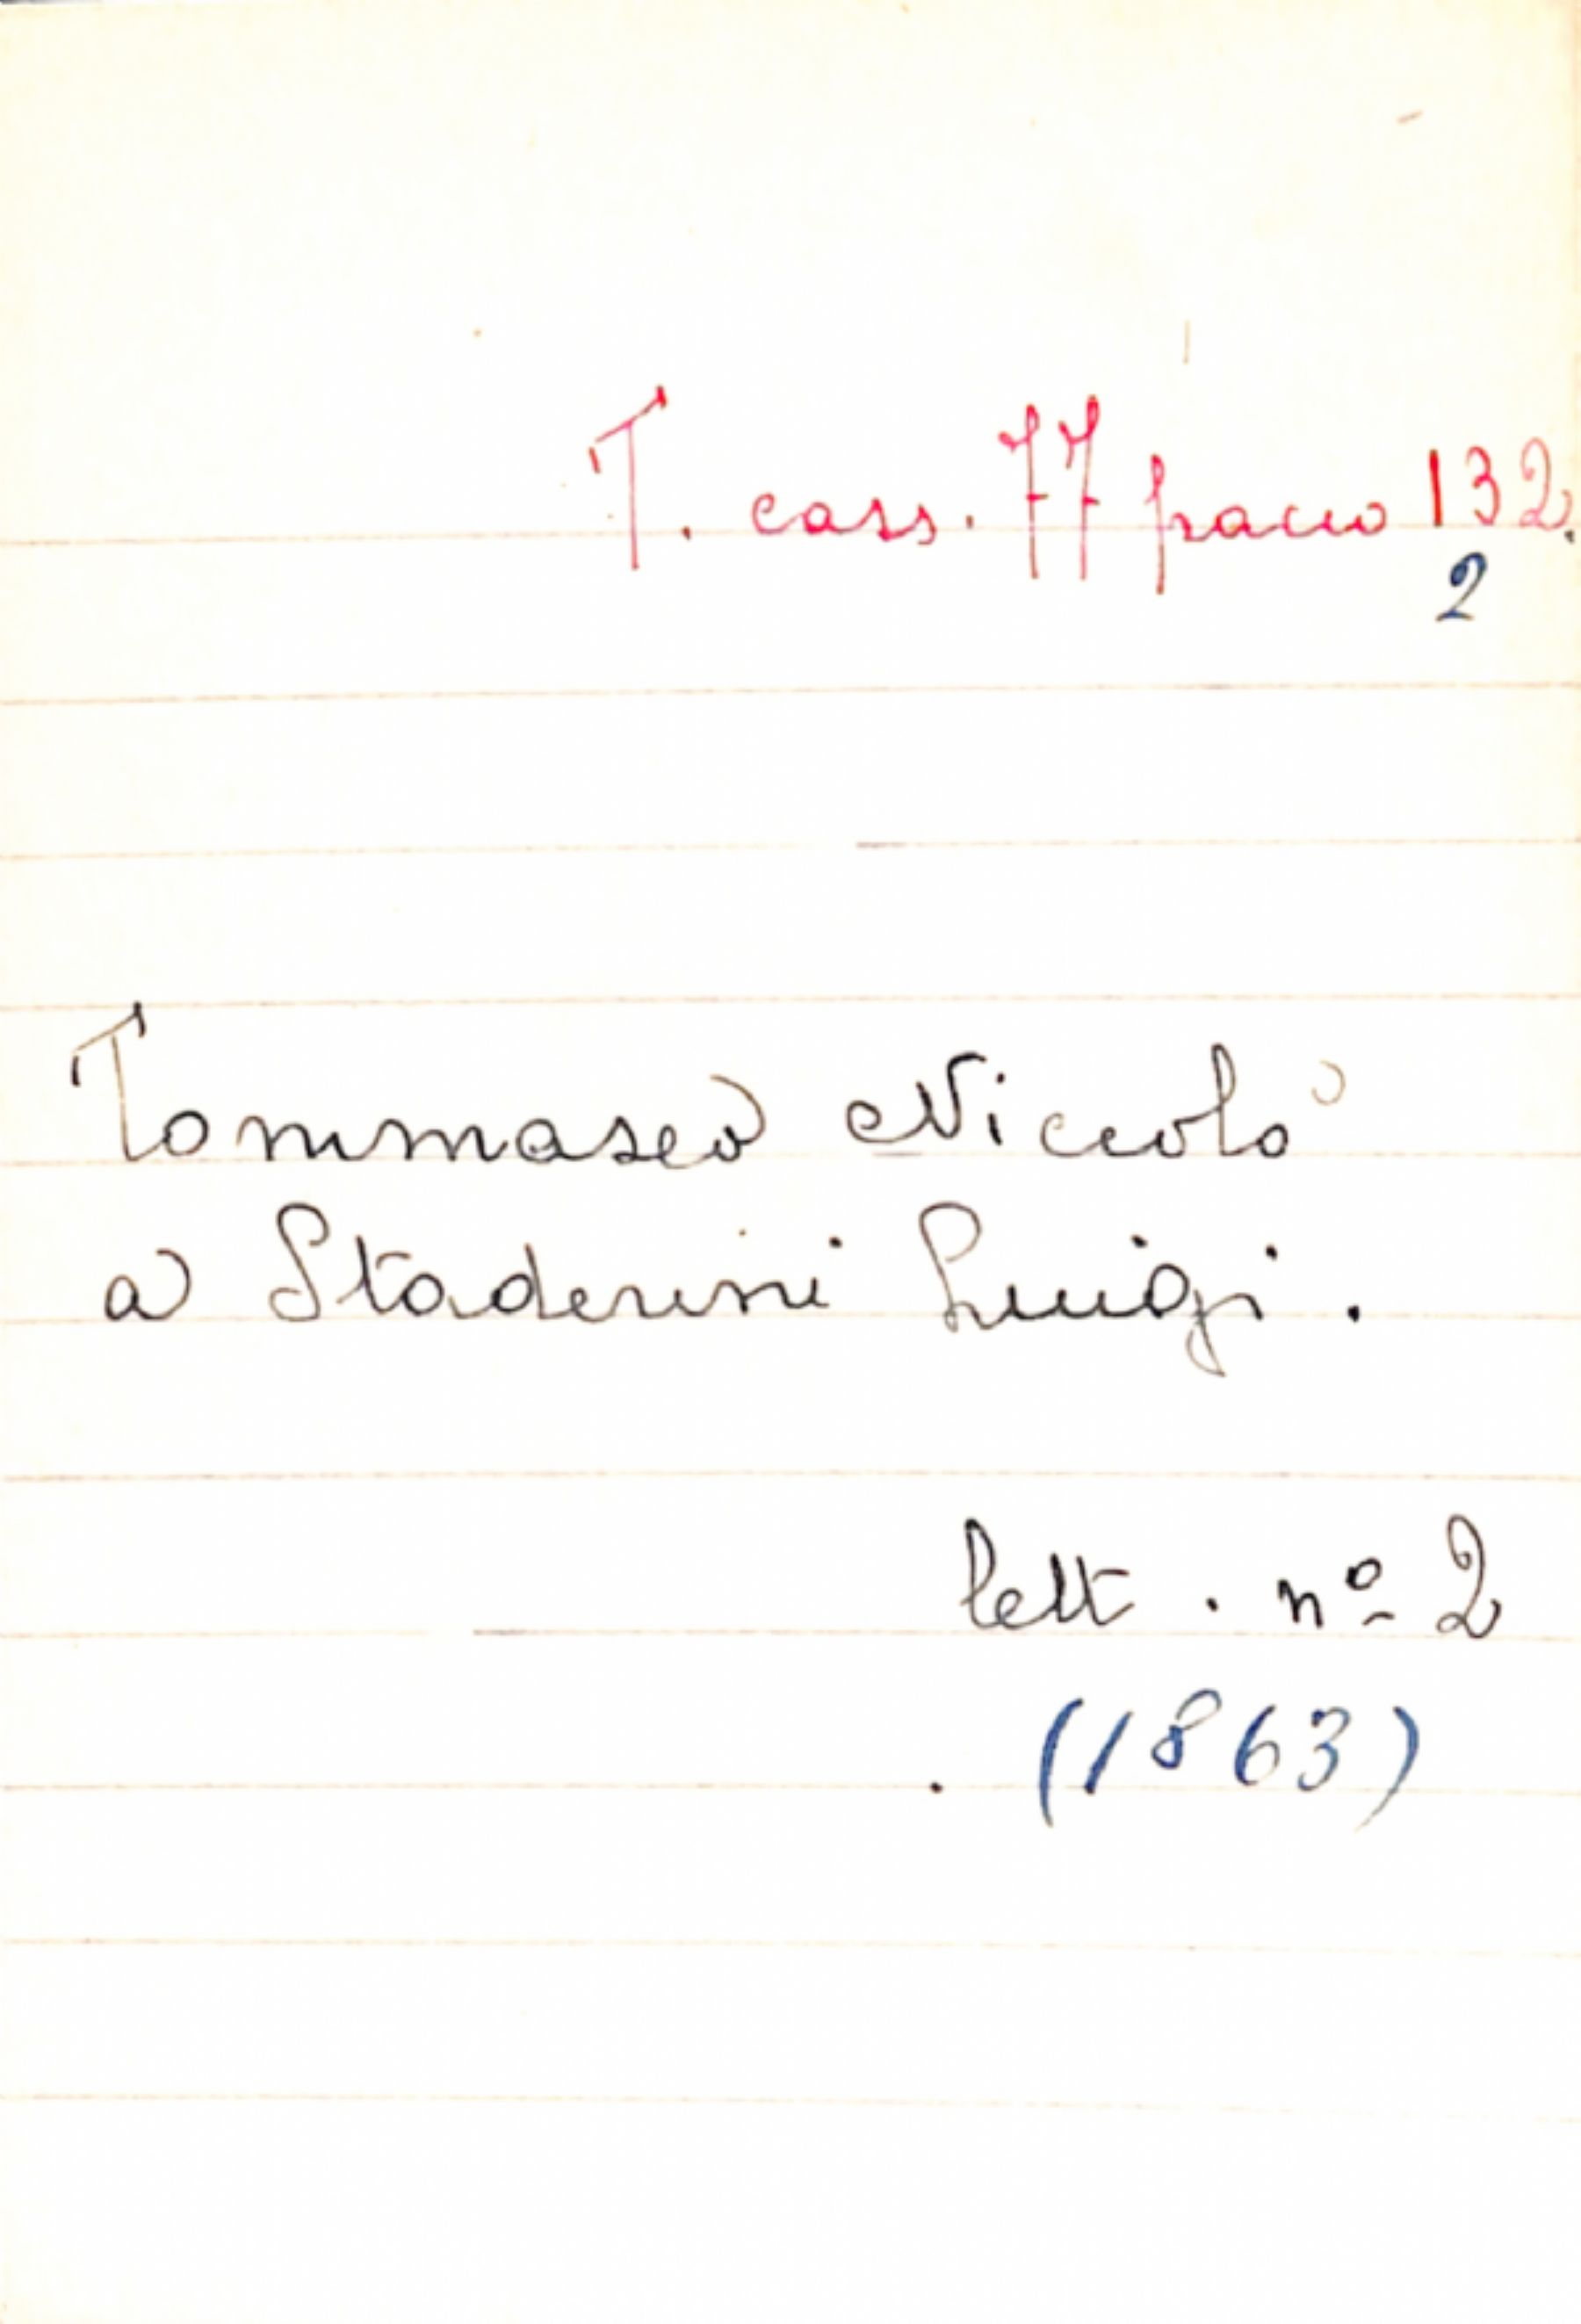 T. cass. 77 pacco 132.
2
Tommaseo Niccolò
a Staderini Luigi.
lett. nº 2
(1863)